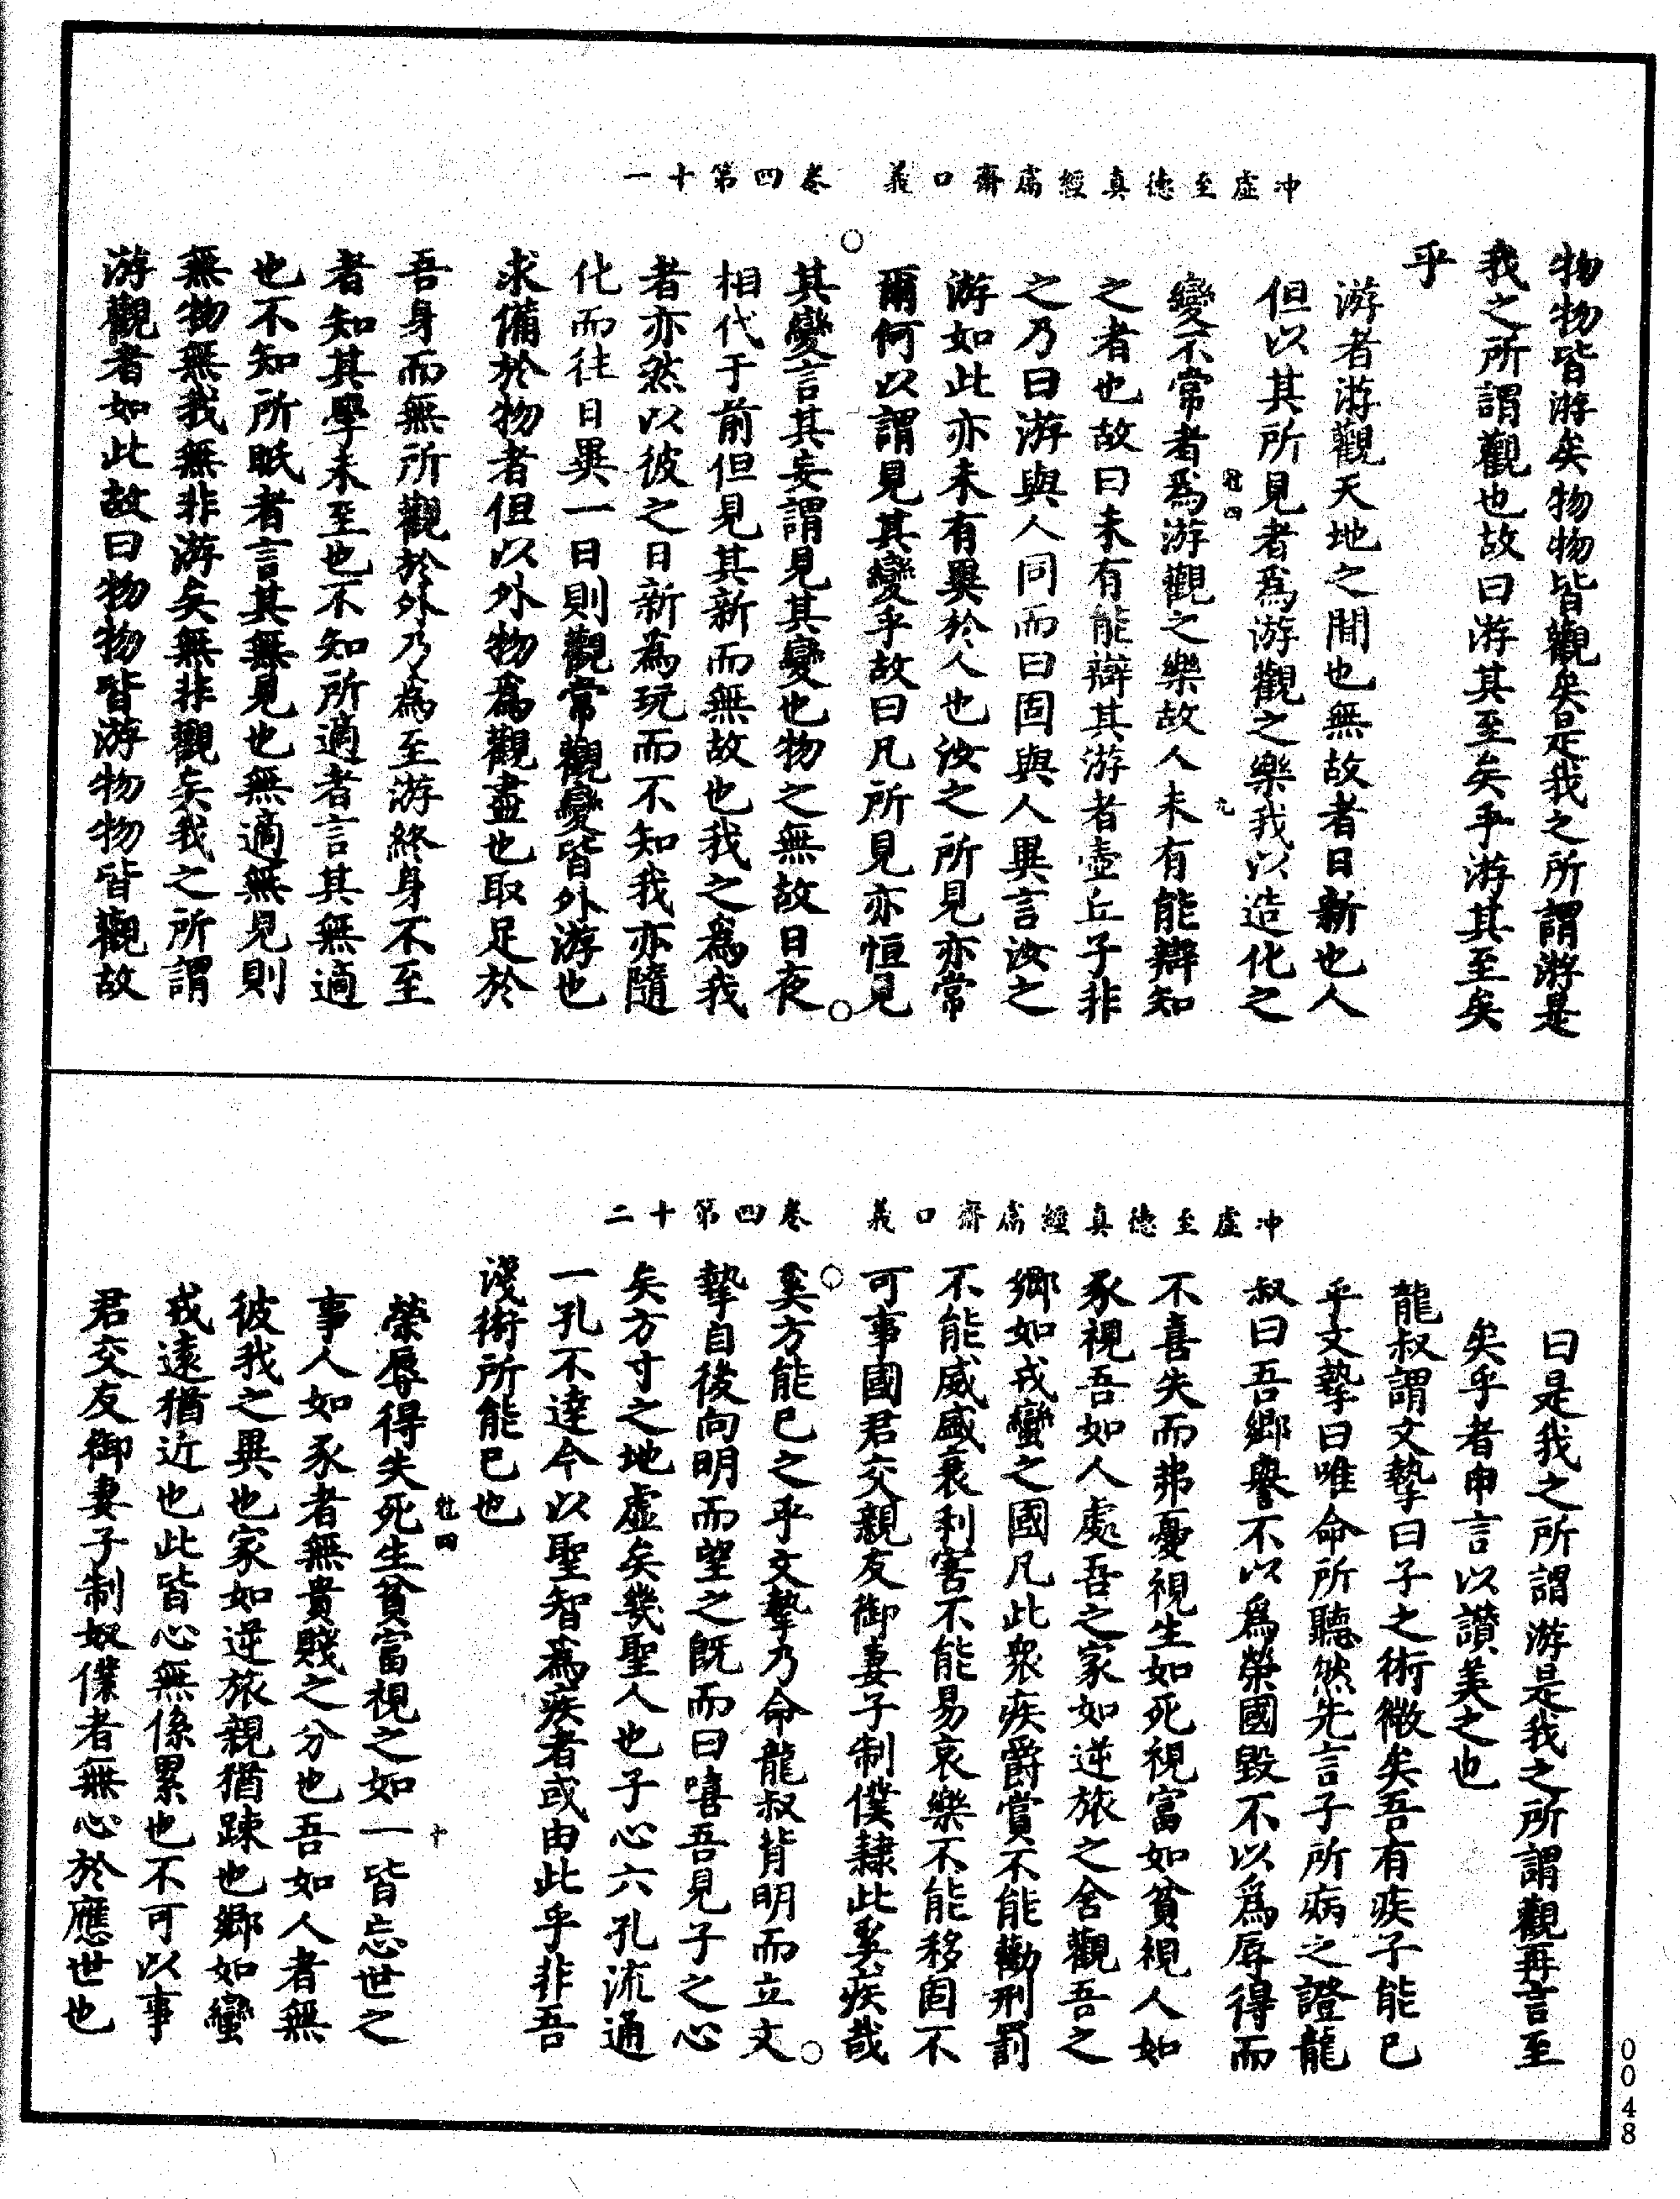 冲虛至德真經鬳齋口義　卷四第十一
物物皆游矣物物皆觀矣是我之所謂游是
我之所謂觀也故曰游其至矣乎游其至矣
乎
游者游觀天地之間也無故者日新也人
但以其所見者爲游觀之樂我以造化之
變不常者爲游觀之樂故人未有能辯知
牡四
九
之者也故曰未有能辯其游者壺丘子非
之乃曰游與人同而曰固與人異言汝之
游如此亦未有異於人也汝之所見亦常
爾何以謂見其變乎故曰凡所見亦恒見
其變言其妄謂見其變也物之無故日夜
相代于前但見其新而無故也我之爲我
者亦然以彼之日新爲玩而不知我亦隨
化而往日異一日則觀常觀變皆外游也
求備於物者但以外物爲觀盡也取足於
吾身而無所觀於外乃爲至游終身不至
者知其學未至也不知所適者言其無適
也不知所眂者言其無見也無適無見則
無物無我無非游矣無非觀矣我之所謂
游觀者如此故曰物物皆游物物皆觀故
冲虛至德真經鬳齋口義　卷四第十二
曰是我之所謂游是我之所謂觀再言至
矣乎者申言以讚美之也
龍叔謂文摯曰子之術微矣吾有疾子能已
乎文摯曰唯命所聽然先言子所病之證龍
叔曰吾鄉譽不以爲榮國毀不以爲辱得而
不喜失而弗憂視生如死視富如貧視人如
豕視吾如人處吾之家如逆旅之舍觀吾之
鄉如戎蠻之國凡此衆疾爵賞不能勸刑罰
不能威盛衰利害不能易哀樂不能移固不
可事國君交親友御妻子制僕隸此奚疾哉
奚方能已之乎文摯乃命龍叔背明而立文
摯自後向明而望之旣而曰嘻吾見子之心
矣方寸之地虛矣幾聖人也子心六孔流通
一孔不達今以聖智爲疾者或由此乎非吾
淺術所能已也
牡四
十
榮辱得失死生貧富視之如一皆忘世之
事人如豕者無貴賤之分也吾如人者無
彼我之異也家如逆旅親猶踈也鄉如蠻
戎遠猶近也此皆心無係累也不可以事
君交友御妻子制奴僕者無心於應世也
0048